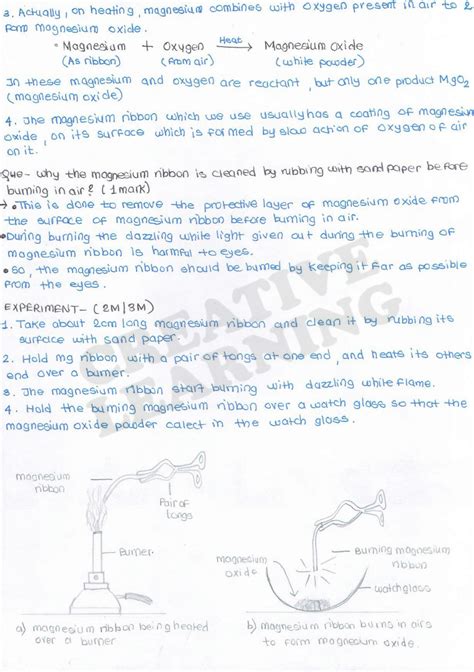 3. Actually, on heating, magnesium combines with oxygen present in air to &
form magnesium oxide.
• Magnesium + Oxygen Heat → Magnesium oxide
(As ribbon) (from air) (white powder)
In these magnesium and oxygen are reactant, but only one product MgO2
(magnesium oxide)
4. The magnesium ribbon which we use usually has a coating of magnesium
oxide, on its surface which is formed by slow action of oxygen of air
on it.
Que- Why the magnesium ribbon is cleaned by rubbing with sand paper before
burning in air? (1 mark)
→ • This is done to remove the protective layer of magnesium oxide from
the surface of magnesium ribbon before burning in air.
• During burning the dazzling white light given out during the burning of
magnesium ribbon is harmful to eyes.
• So, the magnesium ribbon should be burned by keeping it far as possible
from the eyes.
EXPERIMENT- (2M/3M)
1. Take about 2cm long magnesium ribbon and clean it by rubbing its
surface with sand paper.
2. Hold mg ribbon with a pair of tongs at one end, and heats its others
end over a burner.
3. The magnesium ribbon start burning with dazzling white flame.
4. Hold the burning magnesium ribbon over a watch glass so that the
magnesium oxide powder calect in the watch glass.
CREATIVE
LEARNING
magnesium
ribbon
Pair of
tongs
Burner
a) magnesium ribbon being heated
over a burner
magnesium
oxide
Burning magnesium
ribbon
watchglass
b) magnesium ribbon burns in airs
to form magnesium oxide.